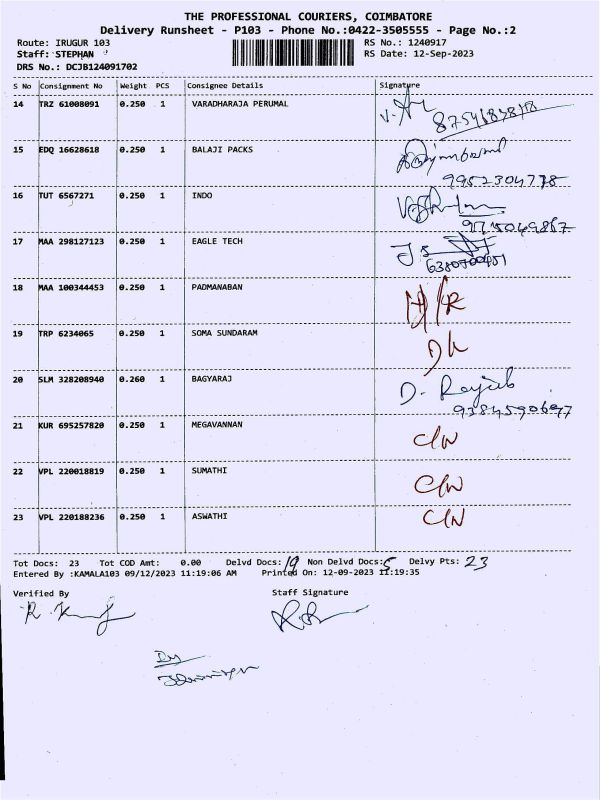 THE PROFESSIONAL COURIERS, COIMBATORE
Delivery Runsheet - P103 - Phone No.:0422-3505555 - Page No.:2
Route: IRUGUR 103 RS No.: 1240917
Staff: STEPHAN RS Date: 12-Sep-2023
DRS No.: DCJB124091702
S No Consignment No Weight PCS Consignee Details Signature
14 TRZ 61008091 0.250 1 VARADHARAJA PERUMAL
15 EDQ 16628618 0.250 1 BALAJI PACKS
9952304778
16 TUT 6567271 0.250 1 INDO
17 MAA 298127123 0.250 1 EAGLE TECH
18 MAA 100344453 0.250 1 PADMANABAN
19 TRP 6234065 0.250 1 SOMA SUNDARAM
20 SLM 328208940 0.260 1 BAGYARAJ
9384590697
21 KUR 695257820 0.250 1 MEGAVANNAN C/N
22 VPL 220018819 0.250 1 SUMATHI C/N
23 VPL 220188236 0.250 1 ASWATHI C/N
Tot Docs: 23 Tot COD Amt: 0.00 Delvd Docs: 19 Non Delvd Docs: 5 Delvy Pts: 23
Entered By :KAMALA103 09/12/2023 11:19:06 AM Printed On: 12-09-2023 11:19:35
Verified By Staff Signature